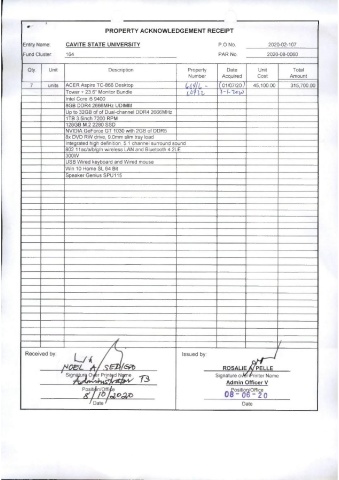 PROPERTY ACKNOWLEDGEMENT RECEIPT
Entity Name: CAVITE STATE UNIVERSITY P.O No. 2020-02-107
Fund Cluster: 164 PAR No. 2020-08-0060
Qty Unit Description Property Number Date Acquired Unit Cost Total Amount
7 units ACER Aspire TC-866 Desktop 01/07/20 45,100.00 315,700.00
Tower + 23.6" Monitor Bundle
Intel Core i5 9400
8GB DDR4 2666MHz UDIMM
Up to 32GB of Dual-channel DDR4 2666MHz
1TB 3.5inch 7200 RPM
128GB M.2 2280 SSD
NVIDIA GeForce GT 1030 with 2GB of DDR5
8x DVD RW drive, 9.0mm slim tray load
Integrated high definition 5.1 channel surround sound
802.11ac/a/b/g/n wireless LAN and Bluetooth 4.2 LE
300W
USB Wired keyboard and Wired mouse
Win 10 Home SL 64 Bit
Speaker Genius SPU115
Received by: Issued by:
NOEL A ROSALIE A. PELLE
Signature Over Printed Name Signature over Printer Name
Administrator T3 Admin Officer V
Position/Office Position/Office
8/10/2020 08-06-20
Date Date